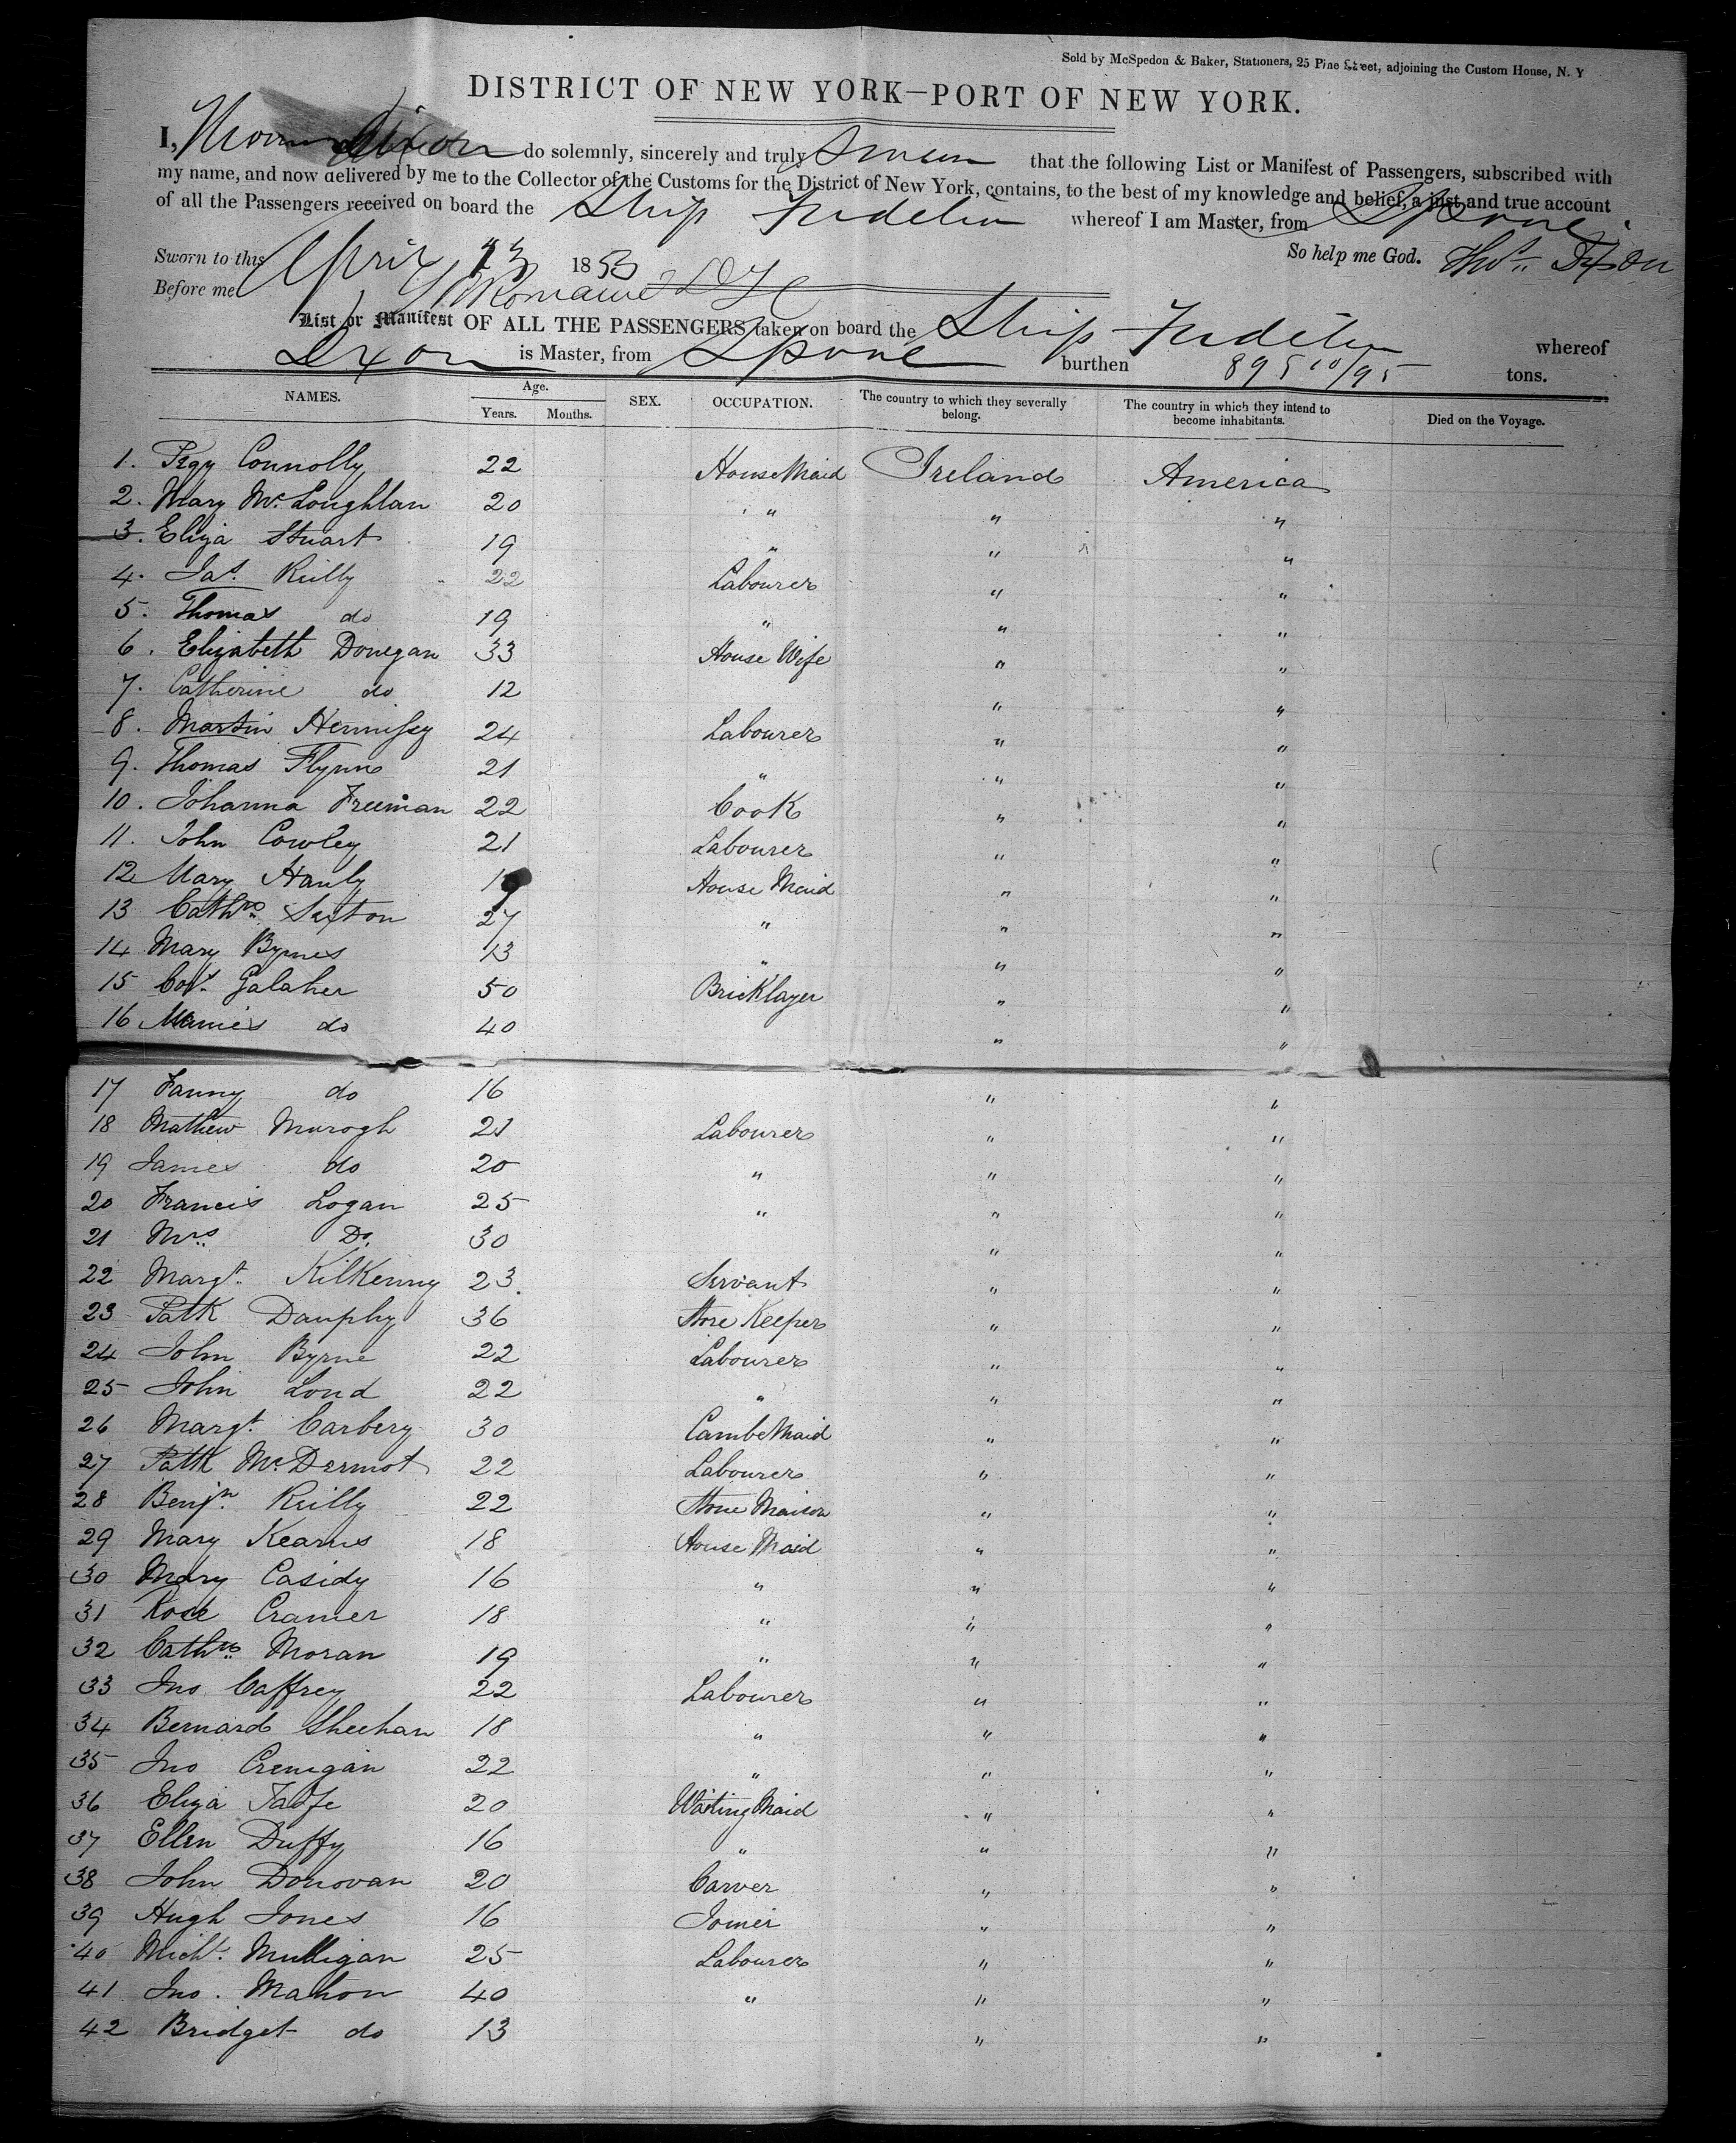 Sold by McSpedon & Baker, Stationers, 25 Pine Street, adjoining the Custom House, N. Y
DISTRICT OF NEW YORK—PORT OF NEW YORK.
I, do solemnly, sincerely and truly that the following List or Manifest of Passengers, subscribed with
my name, and now delivered by me to the Collector of the Customs for the District of New York, contains, to the best of my knowledge and belief, a just and true account
of all the Passengers received on board the Ship whereof I am Master, from
So help me God. Thos. Dixon
Sworn to this April 13 1853
Before me
List or Manifest OF ALL THE PASSENGERS taken on board the Ship whereof
Dixon is Master, from Lpool burthen 895 10/95 tons.
NAMES. Age. Years. Months. SEX. OCCUPATION. The country to which they severally belong. The country in which they intend to become inhabitants. Died on the Voyage.
1. Pegy Connolly 22 House Maid Ireland America
2. Mary Mc Loughlan 20 " " "
3. Eliza Stuart 19 " " "
4. Jas. Reilly 22 Labourer " "
5. Thomas do 19 " " "
6. Elizabeth Donegan 33 House Wife " "
7. Catherine do 12 " "
8. Martin Hennissy 24 Labourer " "
9. Thomas Flynn 21 " " "
10. Johanna Freeman 22 Cook " "
11. John Cowley 21 Labourer " "
12 Mary Hanly House Maid " "
13 Cathne. Sexton 27 " " "
14 Mary Byrnes 13 " " "
15 Galaher 50 Bricklayer " "
16 do 40 " "
17 Fanny do 16 " "
18 Mathew Murogh 21 Labourer " "
19 James do 20 " " "
20 Francis Logan 25 " " "
21 Mrs. Do. 30 " "
22 Margt. Kilkenny 23 Servant " "
23 Patk Dauphy 36 Store Keeper " "
24 John Byrne 22 Labourer " "
25 John Lond 22 " " "
26 Margt. Carbery 30 CambeMaid " "
27 Patk McDermot 22 Labourer " "
28 Benjn. Reilly 22 Stone Maison " "
29 Mary Kearns 18 House Maid " "
30 Mary Casidy 16 " " "
31 Rose Cramer 18 " " "
32 Cathne. Moran 19 " " "
33 Jno. Caffrey 22 Labourer " "
34 Bernard Sheehan 18 " " "
35 Jno Crenigan 22 " " "
36 Eliza Taafe 20 Waiting Maid " "
37 Ellen Duffy 16 " " "
38 John Donovan 20 Carver " "
39 Hugh Jones 16 Joiner " "
40 Michl. Mulligan 25 Labourer " "
41 Jno. Mahon 40 " " "
42 Bridget do 13 " "